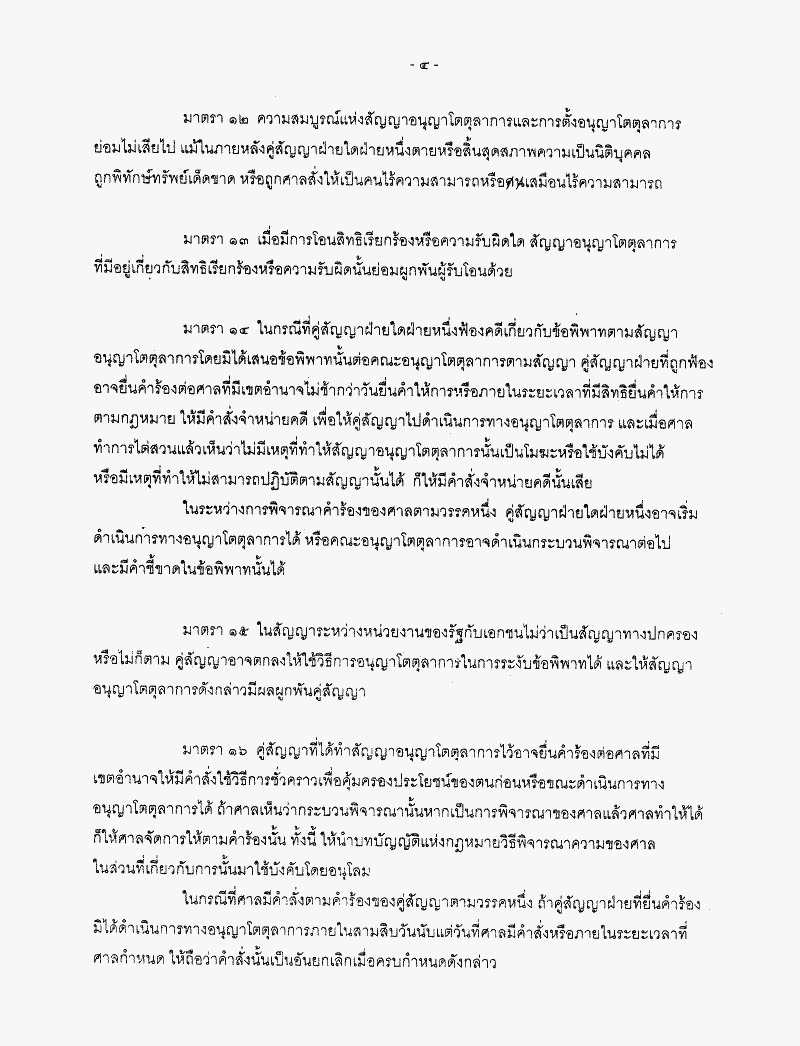 - ๔ -
มาตรา ๑๒ ความสมบูรณ์แห่งสัญญาอนุญาโตตุลาการและการตั้งอนุญาโตตุลาการ
ย่อมไม่เสียไป แม้ในภายหลังคู่สัญญาฝ่ายใดฝ่ายหนึ่งตายหรือสิ้นสุดสภาพความเป็นนิติบุคคล
ถูกพิทักษ์ทรัพย์เด็ดขาด หรือถูกศาลสั่งให้เป็นคนไร้ความสามารถหรือเสมือนไร้ความสามารถ
มาตรา ๑๓ เมื่อมีการโอนสิทธิเรียกร้องหรือความรับผิดใด สัญญาอนุญาโตตุลาการ
ที่มีอยู่เกี่ยวกับสิทธิเรียกร้องหรือความรับผิดนั้นย่อมผูกพันผู้รับโอนด้วย
มาตรา ๑๔ ในกรณีที่คู่สัญญาฝ่ายใดฝ่ายหนึ่งฟ้องคดีเกี่ยวกับข้อพิพาทตามสัญญา
อนุญาโตตุลาการโดยมิได้เสนอข้อพิพาทนั้นต่อคณะอนุญาโตตุลาการตามสัญญา คู่สัญญาฝ่ายที่ถูกฟ้อง
อาจยื่นคำร้องต่อศาลที่มีเขตอำนาจไม่ช้ากว่าวันยื่นคำให้การหรือภายในระยะเวลาที่มีสิทธิยื่นคำให้การ
ตามกฎหมาย ให้มีคำสั่งจำหน่ายคดี เพื่อให้คู่สัญญาไปดำเนินการทางอนุญาโตตุลาการ และเมื่อศาล
ทำการไต่สวนแล้วเห็นว่าไม่มีเหตุที่ทำให้สัญญาอนุญาโตตุลาการนั้นเป็นโมฆะหรือใช้บังคับไม่ได้
หรือมีเหตุที่ทำให้ไม่สามารถปฏิบัติตามสัญญานั้นได้ ก็ให้มีคำสั่งจำหน่ายคดีนั้นเสีย
ในระหว่างการพิจารณาคำร้องของศาลตามวรรคหนึ่ง คู่สัญญาฝ่ายใดฝ่ายหนึ่งอาจเริ่ม
ดำเนินการทางอนุญาโตตุลาการได้ หรือคณะอนุญาโตตุลาการอาจดำเนินกระบวนพิจารณาต่อไป
และมีคำชี้ขาดในข้อพิพาทนั้นได้
มาตรา ๑๕ ในสัญญาระหว่างหน่วยงานของรัฐกับเอกชนไม่ว่าเป็นสัญญาทางปกครอง
หรือไม่ก็ตาม คู่สัญญาอาจตกลงให้ใช้วิธีการอนุญาโตตุลาการในการระงับข้อพิพาทได้ และให้สัญญา
อนุญาโตตุลาการดังกล่าวมีผลผูกพันคู่สัญญา
มาตรา ๑๖ คู่สัญญาที่ได้ทำสัญญาอนุญาโตตุลาการไว้อาจยื่นคำร้องต่อศาลที่มี
เขตอำนาจให้มีคำสั่งใช้วิธีการชั่วคราวเพื่อคุ้มครองประโยชน์ของตนก่อนหรือขณะดำเนินการทาง
อนุญาโตตุลาการได้ ถ้าศาลเห็นว่ากระบวนพิจารณานั้นหากเป็นการพิจารณาของศาลแล้วศาลทำให้ได้
ก็ให้ศาลจัดการให้ตามคำร้องนั้น ทั้งนี้ ให้นำบทบัญญัติแห่งกฎหมายวิธีพิจารณาความของศาล
ในส่วนที่เกี่ยวกับการนั้นมาใช้บังคับโดยอนุโลม
ในกรณีที่ศาลมีคำสั่งตามคำร้องของคู่สัญญาตามวรรคหนึ่ง ถ้าคู่สัญญาฝ่ายที่ยื่นคำร้อง
มิได้ดำเนินการทางอนุญาโตตุลาการภายในสามสิบวันนับแต่วันที่ศาลมีคำสั่งหรือภายในระยะเวลาที่
ศาลกำหนด ให้ถือว่าคำสั่งนั้นเป็นอันยกเลิกเมื่อครบกำหนดดังกล่าว